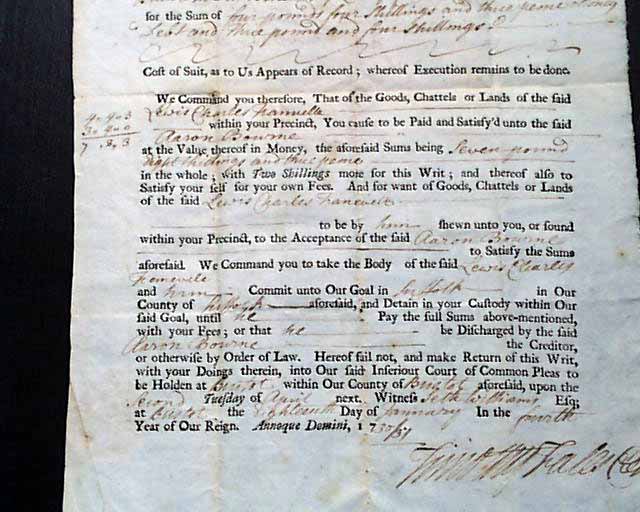 for the Sum of four pounds four shillings and three pence Money
Debt and three pound and four shillings
Cost of Suit, as to Us Appears of Record; whereof Execution remains to be done.
We Command you therefore, That of the Goods, Chattels or Lands of the said
Lewis Charles
within your Precinct, You cause to be Paid and Satisfy'd unto the said
4 . 4 . 3
3 . 4 . 0
7 . 8 . 3
Aaron Bourne
at the Value thereof in Money, the aforesaid Sums being Seven pound
eight shillings and three pence
in the whole; with Two Shillings more for this Writ; and thereof also to
Satisfy your self for your own Fees. And for want of Goods, Chattels or Lands
of the said Lewis Charles
to be by him shewn unto you, or found
within your Precinct, to the Acceptance of the said Aaron Bourne
to Satisfy the Sums
aforesaid. We Command you to take the Body of the said Lewis Charles
and him Commit unto Our Goal in Suffolk in Our
County of Suffolk aforesaid, and Detain in your Custody within Our
said Goal, until he Pay the full Sums above-mentioned,
with your Fees; or that he be Discharged by the said
Aaron Bourne the Creditor,
or otherwise by Order of Law. Hereof fail not, and make Return of this Writ,
with your Doings therein, into Our said Inferiour Court of Common Pleas to
be Holden at Bristol within Our County of Bristol aforesaid, upon the
second Tuesday of April next. Witness Seth Williams Esq;
at Bristol the Eighteenth Day of January In the fourth
Year of Our Reign. Annoque Domini, 1730/31
Timothy Fales Cler